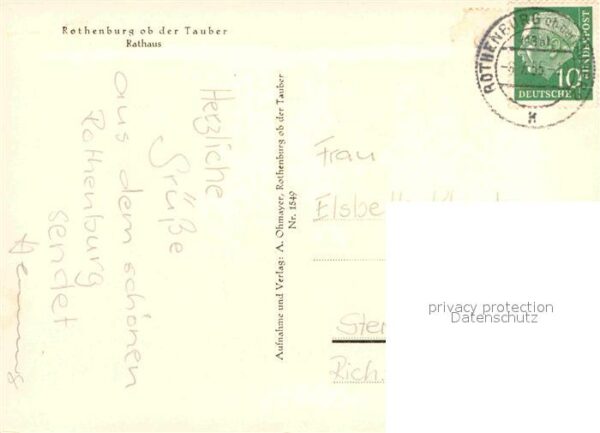 Rothenburg ob der Tauber
Rathaus
Herzliche
Grüße
aus dem schönen
Rothenburg
sendet
Aufnahme und Verlag: A. Ohmayer, Rothenburg ob der Tauber
Nr. 1549
ROTHENBURG
10
DEUTSCHE BUNDESPOST
Frau
privacy protection
Datenschutz